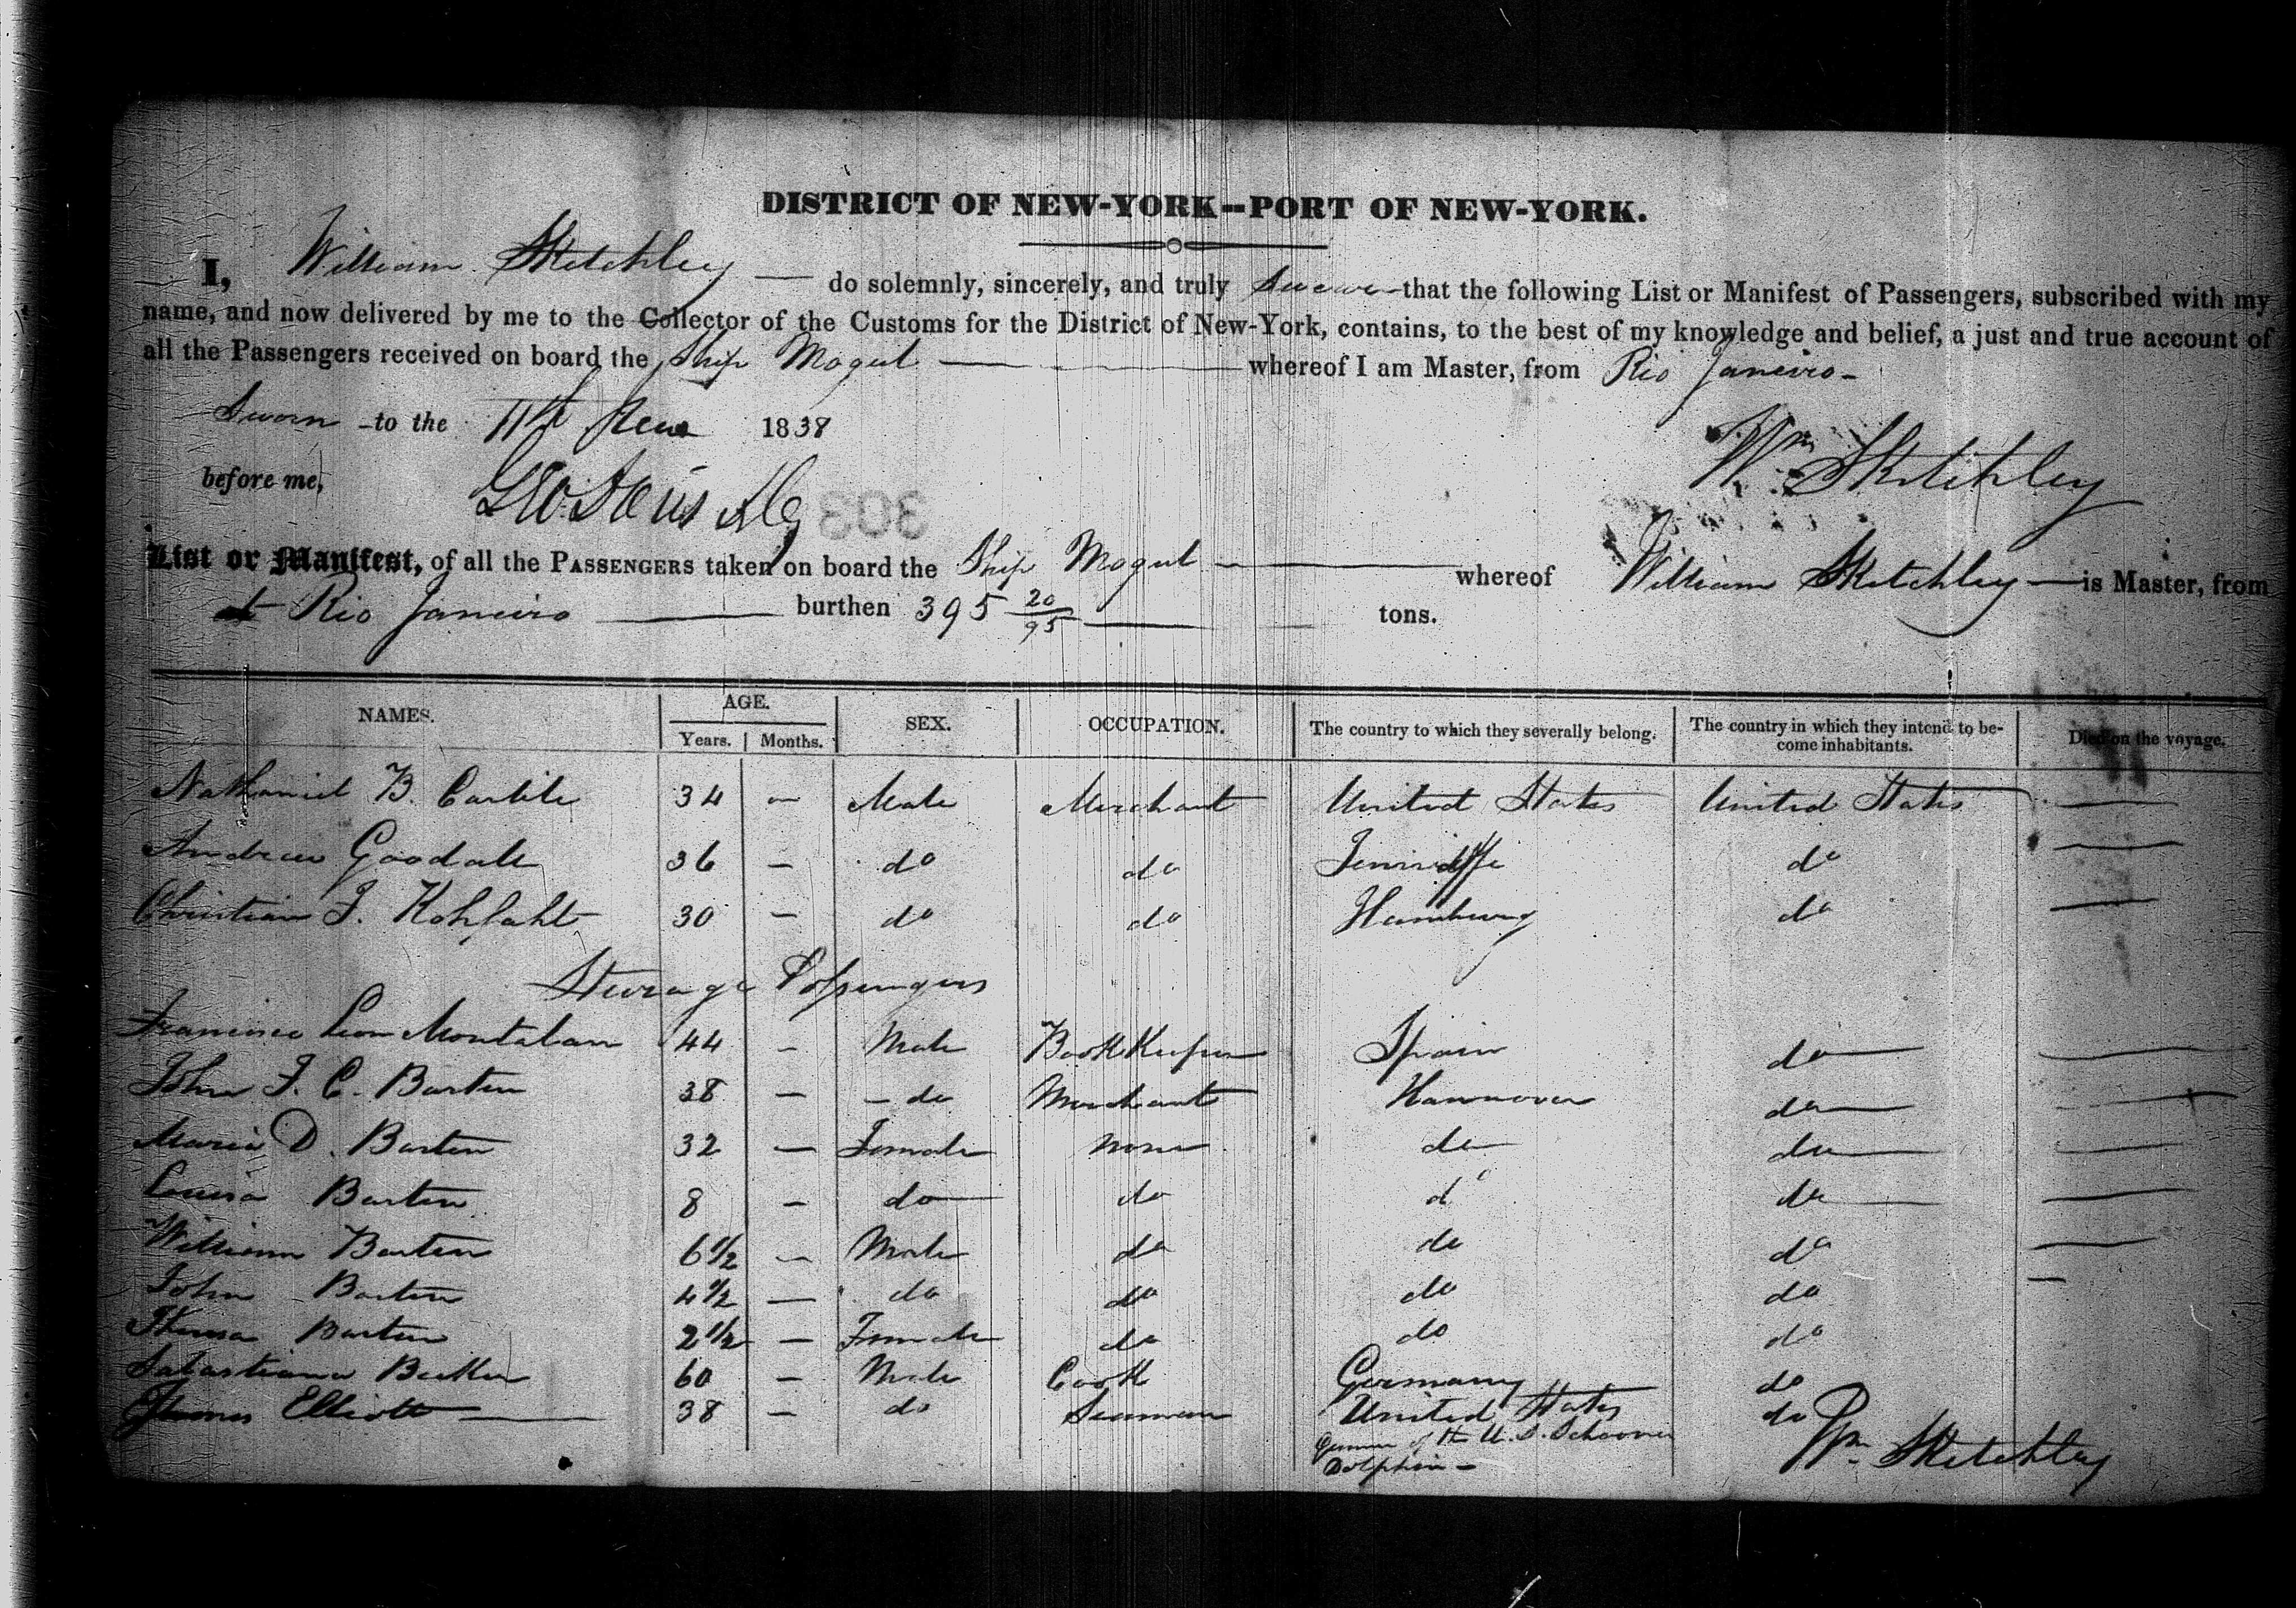 DISTRICT OF NEW-YORK--PORT OF NEW-YORK.
I, William Sketchley — do solemnly, sincerely, and truly Swear that the following List or Manifest of Passengers, subscribed with my
name, and now delivered by me to the Collector of the Customs for the District of New-York, contains, to the best of my knowledge and belief, a just and true account of
all the Passengers received on board the Ship Mogul — whereof I am Master, from Rio Janeiro -
Sworn to the 11th 1838
Wm Sketchley
before me,
303
List or Manifest, of all the PASSENGERS taken on board the Ship Mogul — whereof William Sketchley — is Master, from
Rio Janeiro — burthen 395 20/95 — tons.
NAMES. AGE. Years. Months. SEX. OCCUPATION. The country to which they severally belong. The country in which they intend to be-
come inhabitants. Died on the voyage.
Nathaniel B. Carlile 34 — Male Merchant United States United States —
Andrew Goodale 36 — do do do —
Christian F. Kohfahl 30 — do do Hamburg do —
Steerage Passengers
Francisco Leon Montalban 44 - Male Book Keeper Spain do —
John F. C. Barten 38 — - do Merchant Hannover do —
Maria D. Barten 32 — Female none do do —
Louisa Barten 8 - do do do do —
William Barten 6 1/2 — Male do do do —
John Barten 4 1/2 — do do do do —
Theresa Barten 2 1/2 — Female do do do
Sabastiana Becker 60 — Male Cook Germany do
Elliott — 38 — do Seaman United States do
Gunner of the U. S. Schooner
Dolphin -
Wm Sketchley